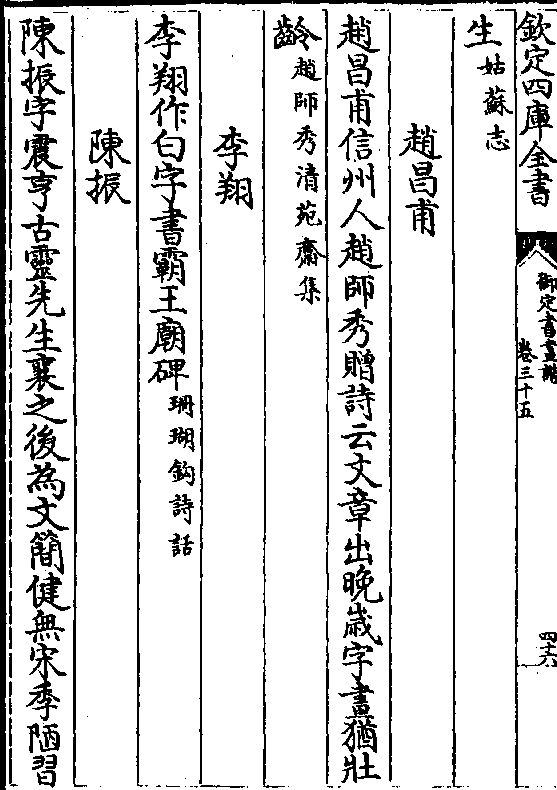 欽定四庫全書
御定書畫譜
卷三十五
四十六
生姑蘇志
趙昌甫
趙昌甫信州人趙師秀贈詩云文章出晚歲字畫猶壯
齡趙師秀清苑齋集
李翔
李翔作白字書霸王廟碑珊瑚鈎詩話
陳振
陳振字震亨古靈先生襄之後為文簡健無宋季陋習